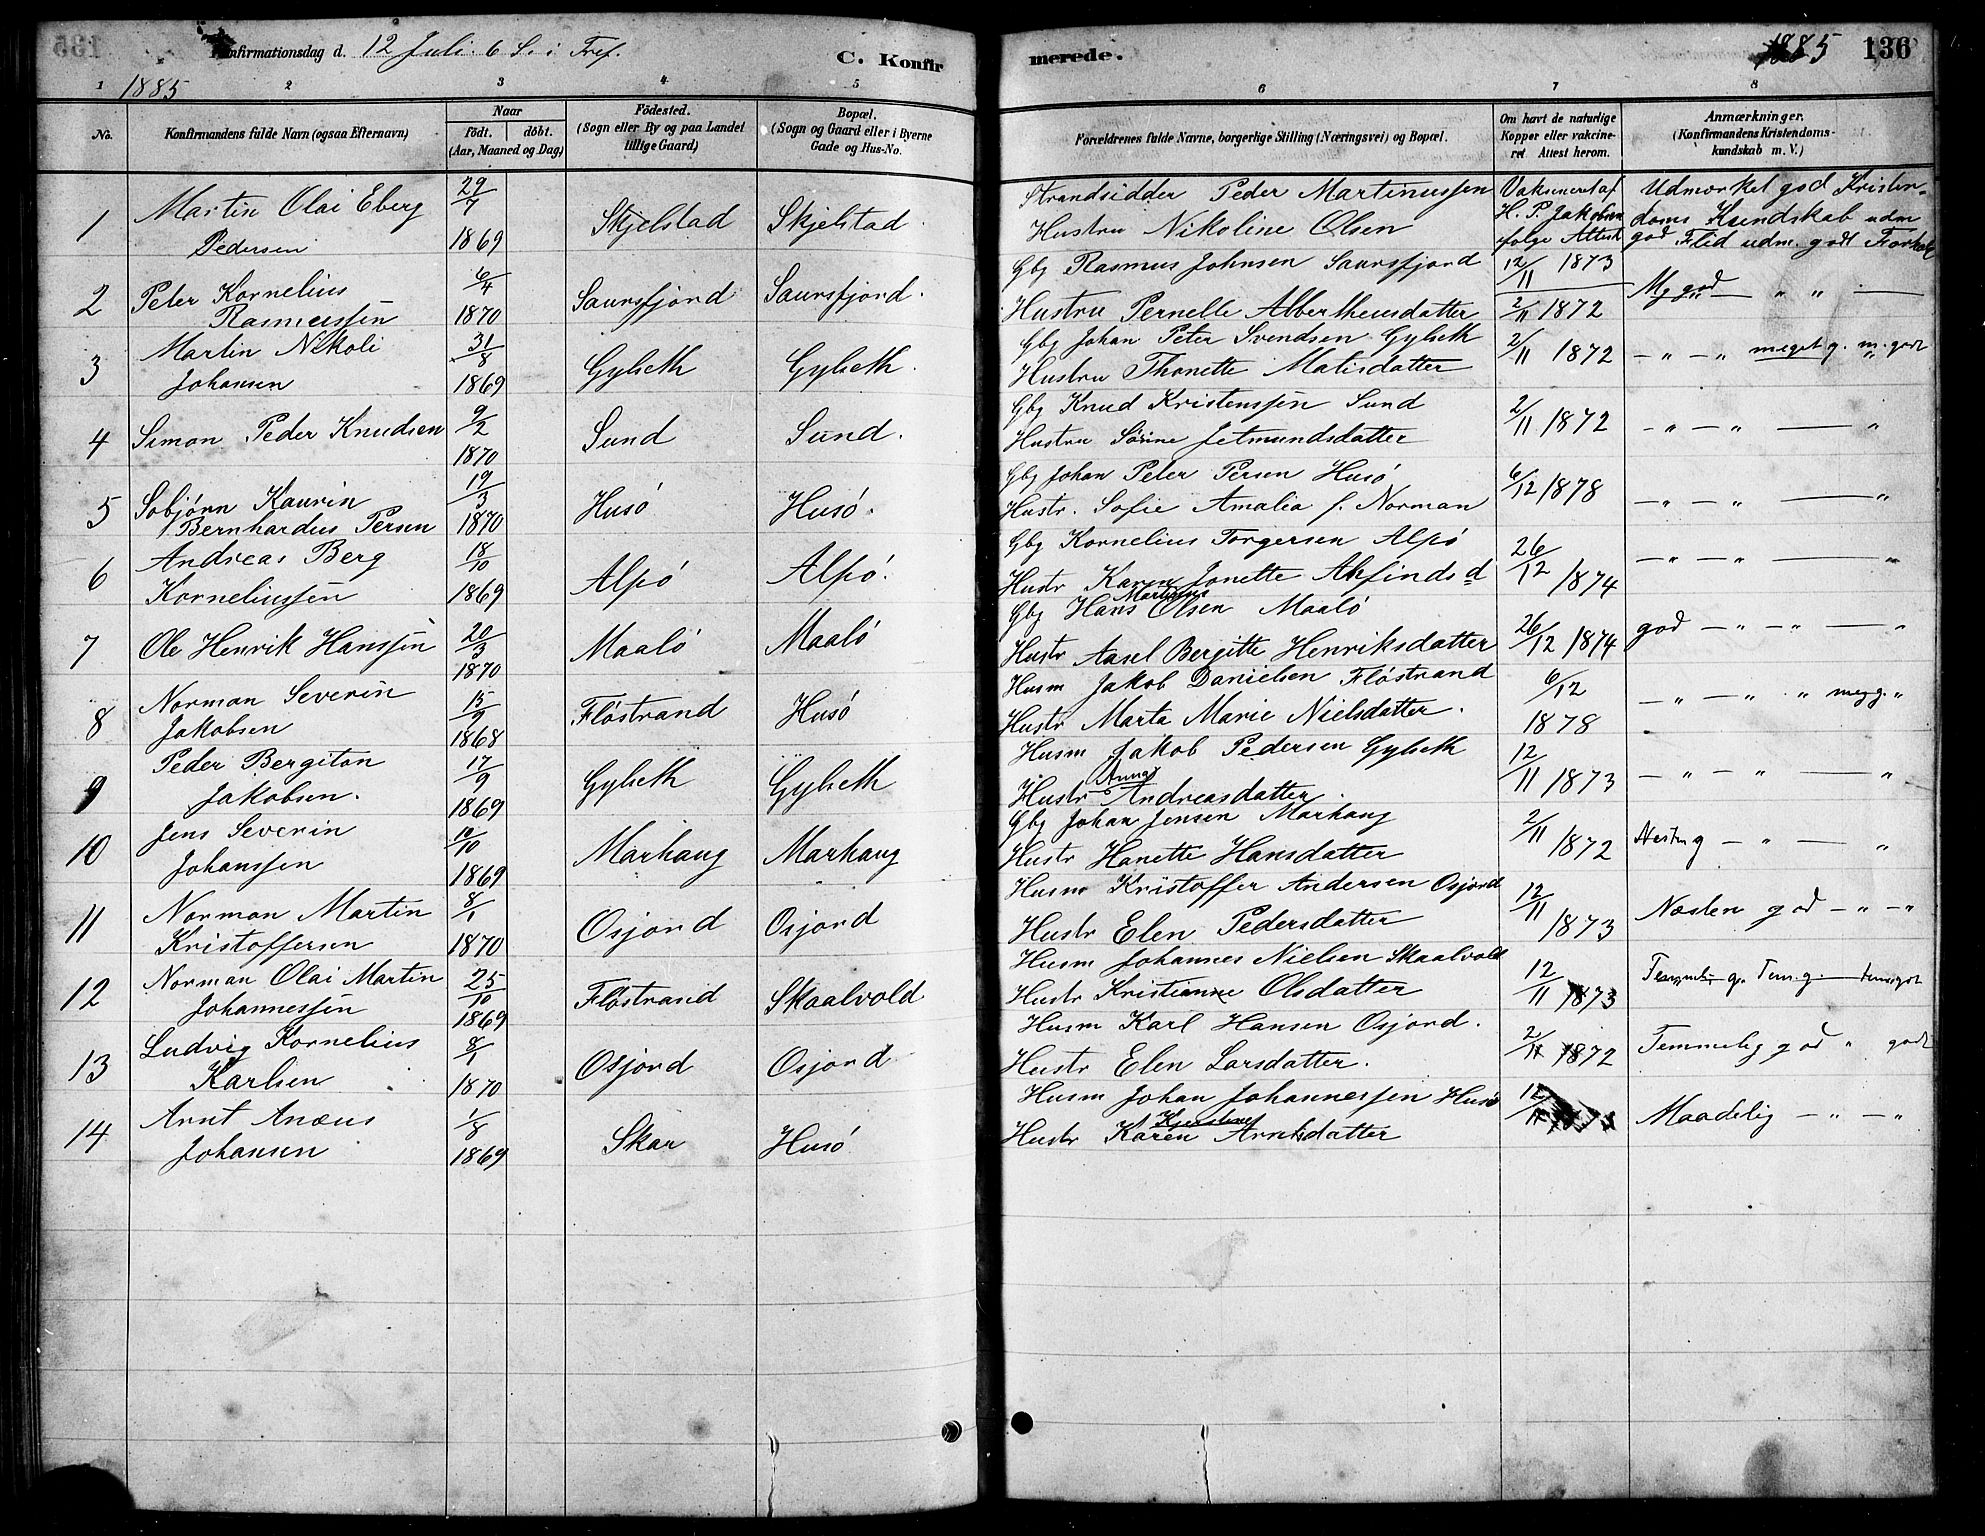 Konfirmationsdag d. 12 Juli. 6 S. i Tref.
C. Konfirmerede.
1885 136
1885
1 2 3 4 5 6 7 8
No.
Konfirmandens fulde Navn (ogsaa Efternavn)
Naar
födt. döbt.
(Aar, Maaned og Dag)
Födested.
(Sogn eller By og paa Landet
tillige Gaard)
Bopæl.
(Sogn og Gaard eller i Byerne
Gade og Hus-No.
Forældrenes fulde Navne, borgerlige Stilling (Næringsvei) og Bopæl.
Om havt de naturlige
Kopper eller vakcine-
ret Attest herom.
Anmærkninger.
(Konfirmandens Kristendoms-
kundskab m. V.)
1 Martin Olai Eberg Pedersen 29/7 1869 Skjelstad Skjelstad.
Strandsidder Peder Martinussen
Hustru Nikoline Olsen
Vaksineret af
H. P. Jakobsen
følge Attest
12/11 1873
Udmærket god Kristen-
doms Kundskab udm
god Flid udm. godt Forhold
2 Peter Kornelius Rasmussen 6/4 1870 Saursfjord Saursfjord.
Gbg Rasmus Johnsen Saursfjord
Hustru Pernelle Albertheusdatter
2/11 1872
Mg god — " " —
3 Martin Nikoli Johansen 31/8 1869 Gylseth Gylseth.
Gbg Johan Peter Svendsen Gylseth
Hustru Thonette Matisdatter
2/11 1872
— " — " meget g. m. godt
4 Simon Peder Knudsen 9/2 1870 Sund Sund.
Gbg Knud Kristenssen Sund
Hustru Sörine Jetmundsdatter
2/11 1872
— " — " — "
5 Sobjörn Kaurin Bernhardus Persen 19/3 1870 Husö Husö.
Gbg Johan Peter Persen Husö
Hustr. Sofie Amalia f. Norman
6/12 1878
— " — " — "
6 Andreas Berg Korneliussen 18/10 1869 Alpö Alpö.
Gbg Kornelius Torgersen Alpö
Hustr Karen Jonette Akfinds d
26/12 1874
— " — " — "
7 Ole Henrik Hanssen 20/3 1870 Maalö Maalö
Gbg Hans Martinus Olsen Maalö
Hustr Aasel Bergitte Henriksdatter
26/12 1874
god — " — " — "
8 Norman Severin Jakobsen 15/9 1868 Flöstrand Husö
Husm Jakob Danielsen Flöstrand
Hustr Marta Marie Nielsdatter.
6/12 1878
— " — " " meg g. "
9 Peder Bergiton Jakobsen. 17/9 1869 Gylseth Gylseth
Husm Jakob Pedersen Gylseth
Hustr Anna Andreasdatter.
12/11 1873
— " — " — "
10 Jens Severin Johanssen 10/10 1869 Marhaug Marhaug
Gbg Johan Jensen Marhaug
Hustr Hanette Hansdatter
2/11 1872
Nesten g — " — "
11 Norman Martin Kristoffersen 8/1 1870 Osjord Osjord
Husm Kristoffer Andersen Osjord
Hustr Elen Pedersdatter
12/11 1873
Næsten god — " — "
12 Norman Olai Martin Johannessen 25/10 1869 Flöstrand Skaalvold
Husm Johannes Nielsen Skaalvold
Hustr Kristianne Olsdatter
12/11 1873
Temmelig g. Tem. g. — temgodt
13 Ludvig Kornelius Karlsen 8/1 1870 Osjord Osjord
Husm Karl Hansen Osjord.
Hustr Elen Larsdatter.
2/11 1872
Temmelig god " godt
14 Arnt Anæus Johansen 1/8 1869 Skar Husö
Husm Johan Johannessen Husö
Hustr Karen Kjerstine Arntsdatter
12/11
Maadelig — " — "